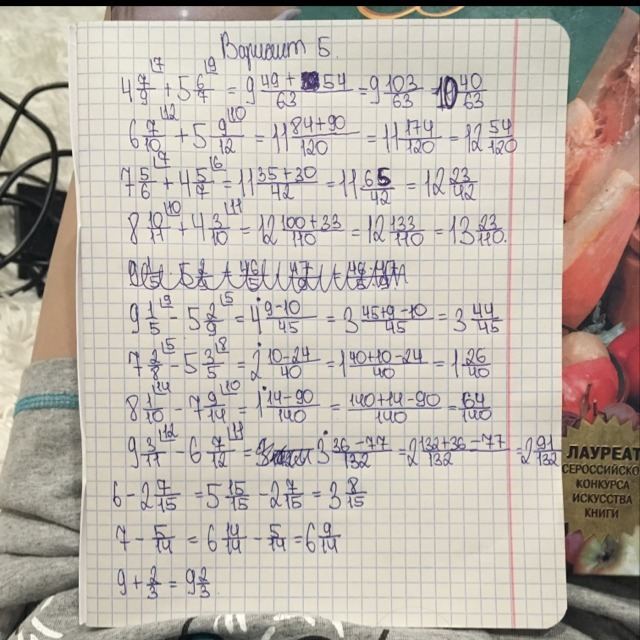 Вариант 5.
4 7/9 + 5 6/7 = 9 49+54/63 = 9 103/63 = 10 40/63
6 7/10 + 5 9/12 = 11 84+90/120 = 11 174/120 = 12 54/120
7 5/6 + 4 5/7 = 11 35+30/42 = 11 65/42 = 12 23/42
8 10/11 + 4 3/10 = 12 100+33/110 = 12 133/110 = 13 23/110.
9 1/5 - 5 2/9 = 4 9-10/45 = 3 45+9-10/45 = 3 44/45
7 2/8 - 5 3/5 = 2 10-24/40 = 1 40+10-24/40 = 1 26/40
8 1/10 - 7 9/14 = 1 14-90/140 = 140+14-90/140 = 64/140
9 3/11 - 6 7/12 = 3 36-77/132 = 2 132+36-77/132 = 2 91/132
6 - 2 7/15 = 5 15/15 - 2 7/15 = 3 8/15
7 - 5/14 = 6 14/14 - 5/14 = 6 9/14
9 + 2/3 = 9 2/3
ЛАУРЕАТ
СЕРОССИЙСКО
КОНКУРСА
ИСКУССТВА
КНИГИ